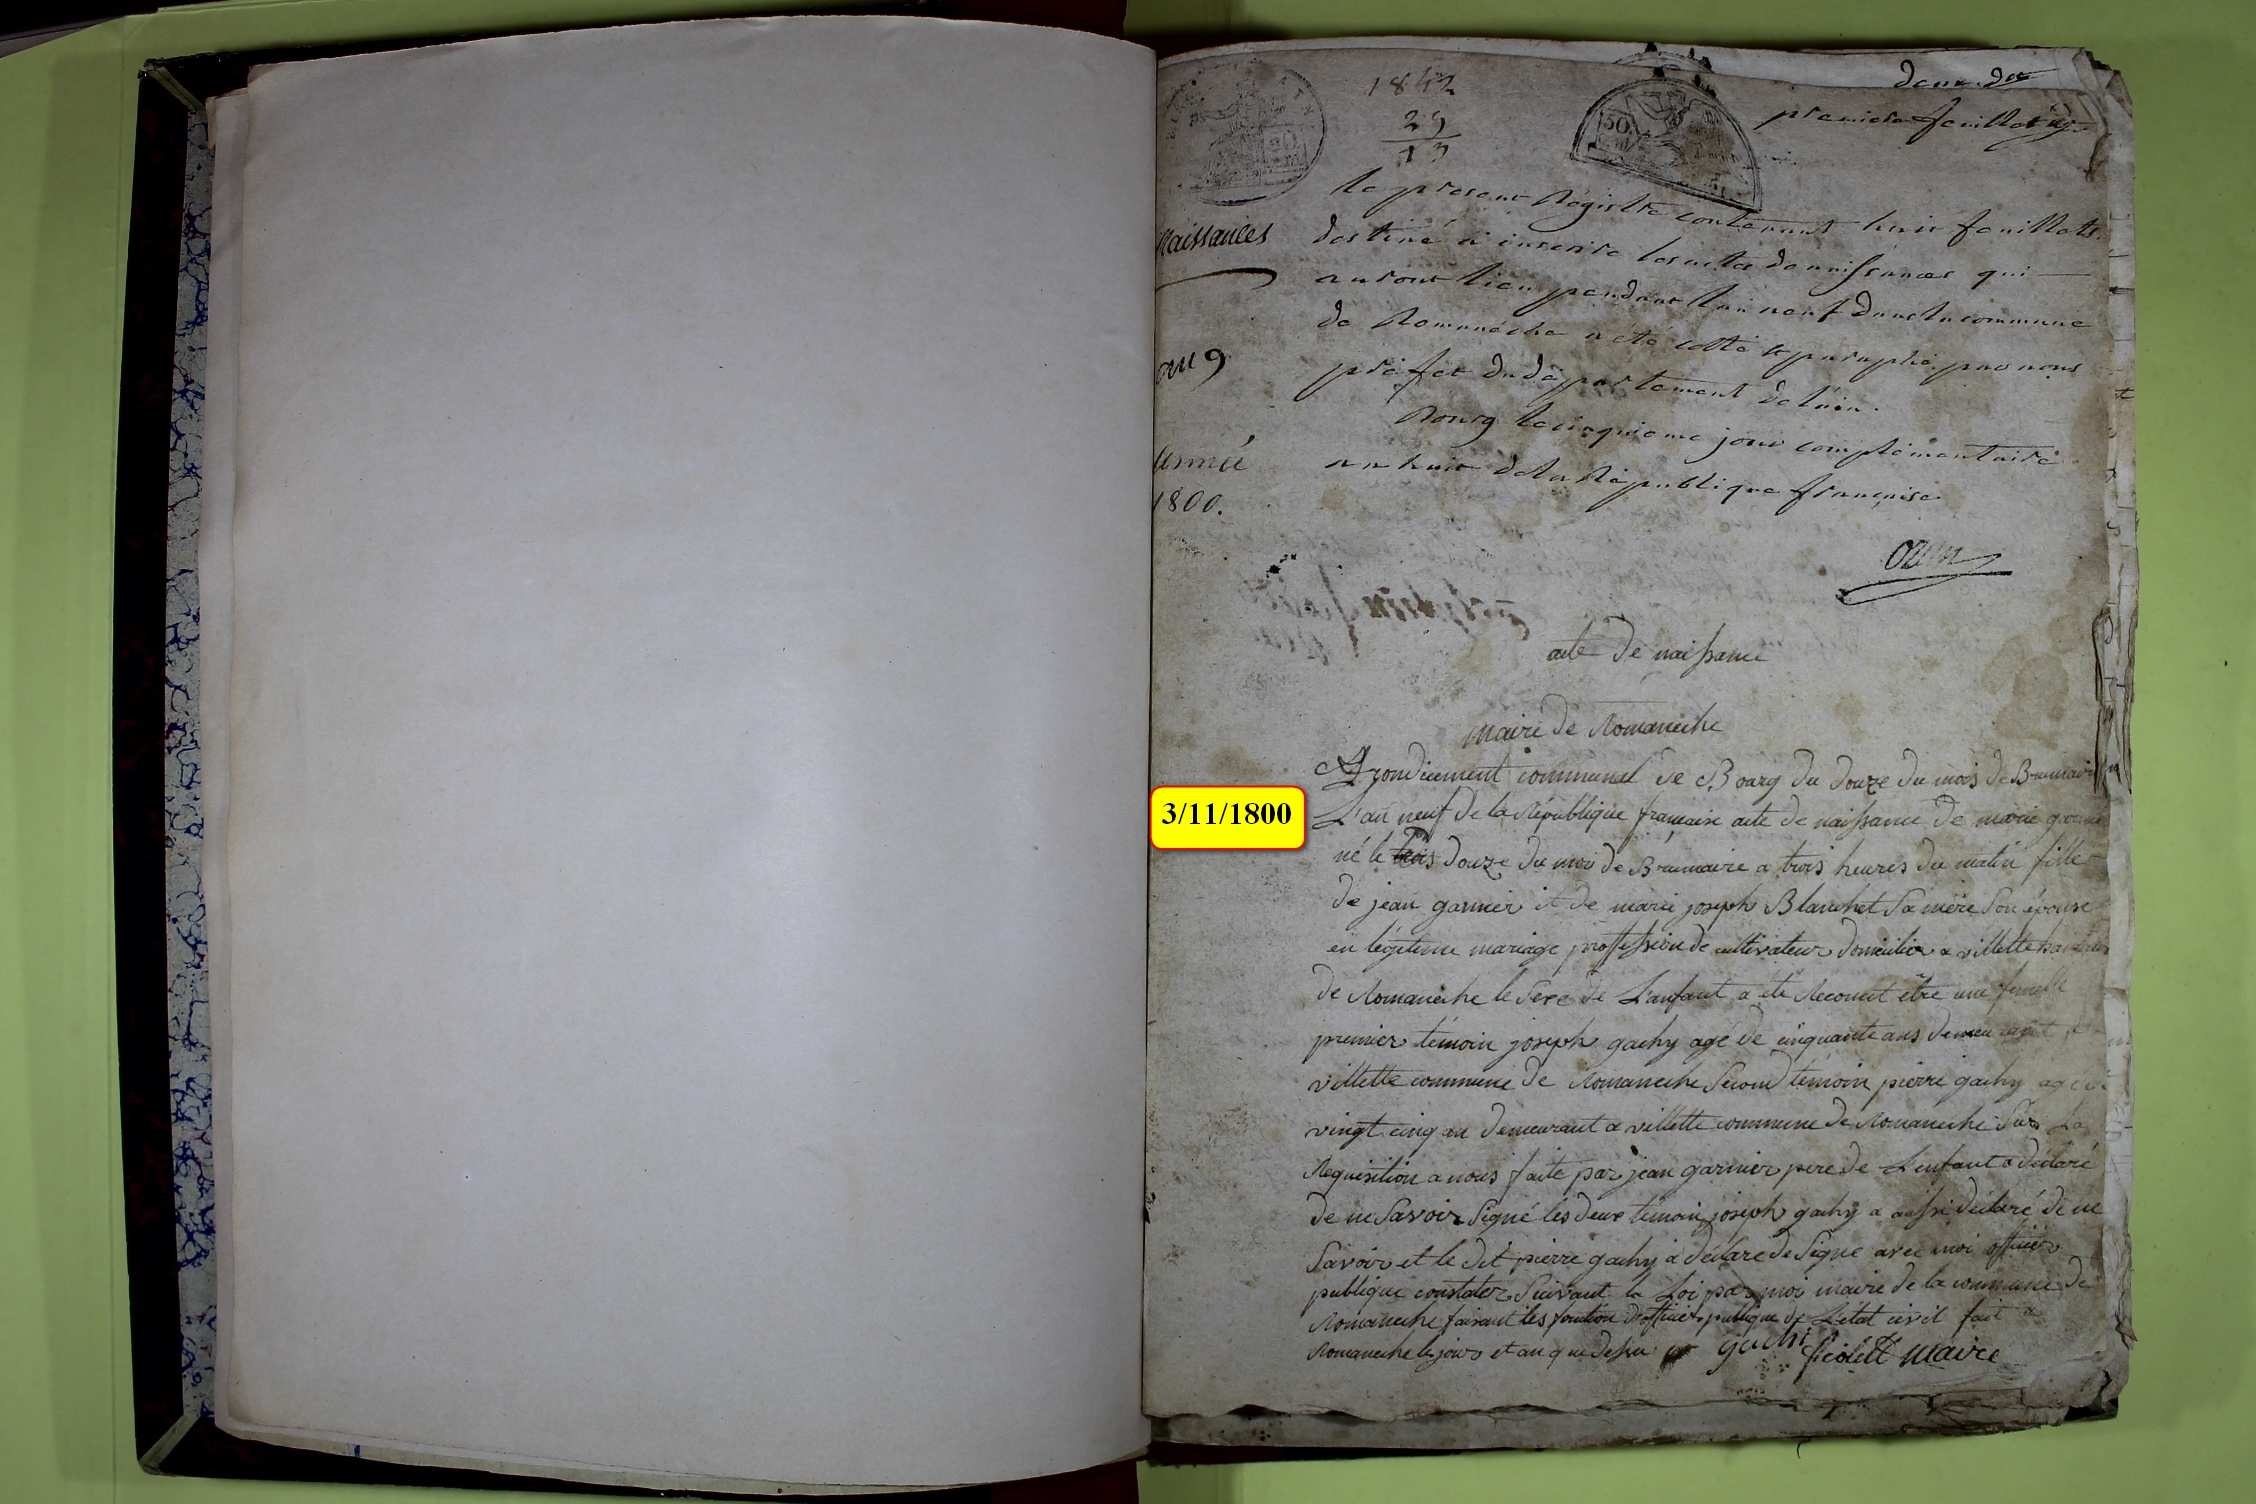 1842
29
13
premier feuillet
Naissances
an 9
année
1800.
le present Registre contenant huit feuillets
destiné a inscrire les actes de naissances qui
auront lieu pendant l'an neuf dans la commune
de Romanéche a été cotté et paraphé par nous
préfet du département de l'ain.
Bourg le cinquieme jour complémentaire
an huit de la République française.
Ozun
acte de naissance
maire de Romaneche
Arondicement communal de Bourg du douze du mois de Brumaire
3/11/1800
L'an neuf de la République française acte de naissance de marie
né le trois douze du moi de Brumaire a trois heures du matin fille
de jean garnier et de marie joseph Blanchet sa mere son épouse
en légitime mariage proffession de cultivateur domicilier a villette
de Romaneche le sexe de L'anfant a été Reconut être une femelle
premier témoin joseph gachy agé de cinquante ans demeurant
villette commune de Romaneche second témoin pierre gachy agé
vingt cinq an demeurant a villette commune de Romaneche sur La
Requisition a nous faite par jean garnier pere de L'enfant a déclaré
de ne savoir signé les deux témoin joseph gachy a aussi déclaré de ne
savoir et le dit pierre gachy a déclare de signe avec moi officier
publique constater suivant la Loi par moi maire de la commune de
Romaneche faisant les fonction d'officier publique de L'état civil fait a
Romaneche le jour et an que dessu
gachi
maire